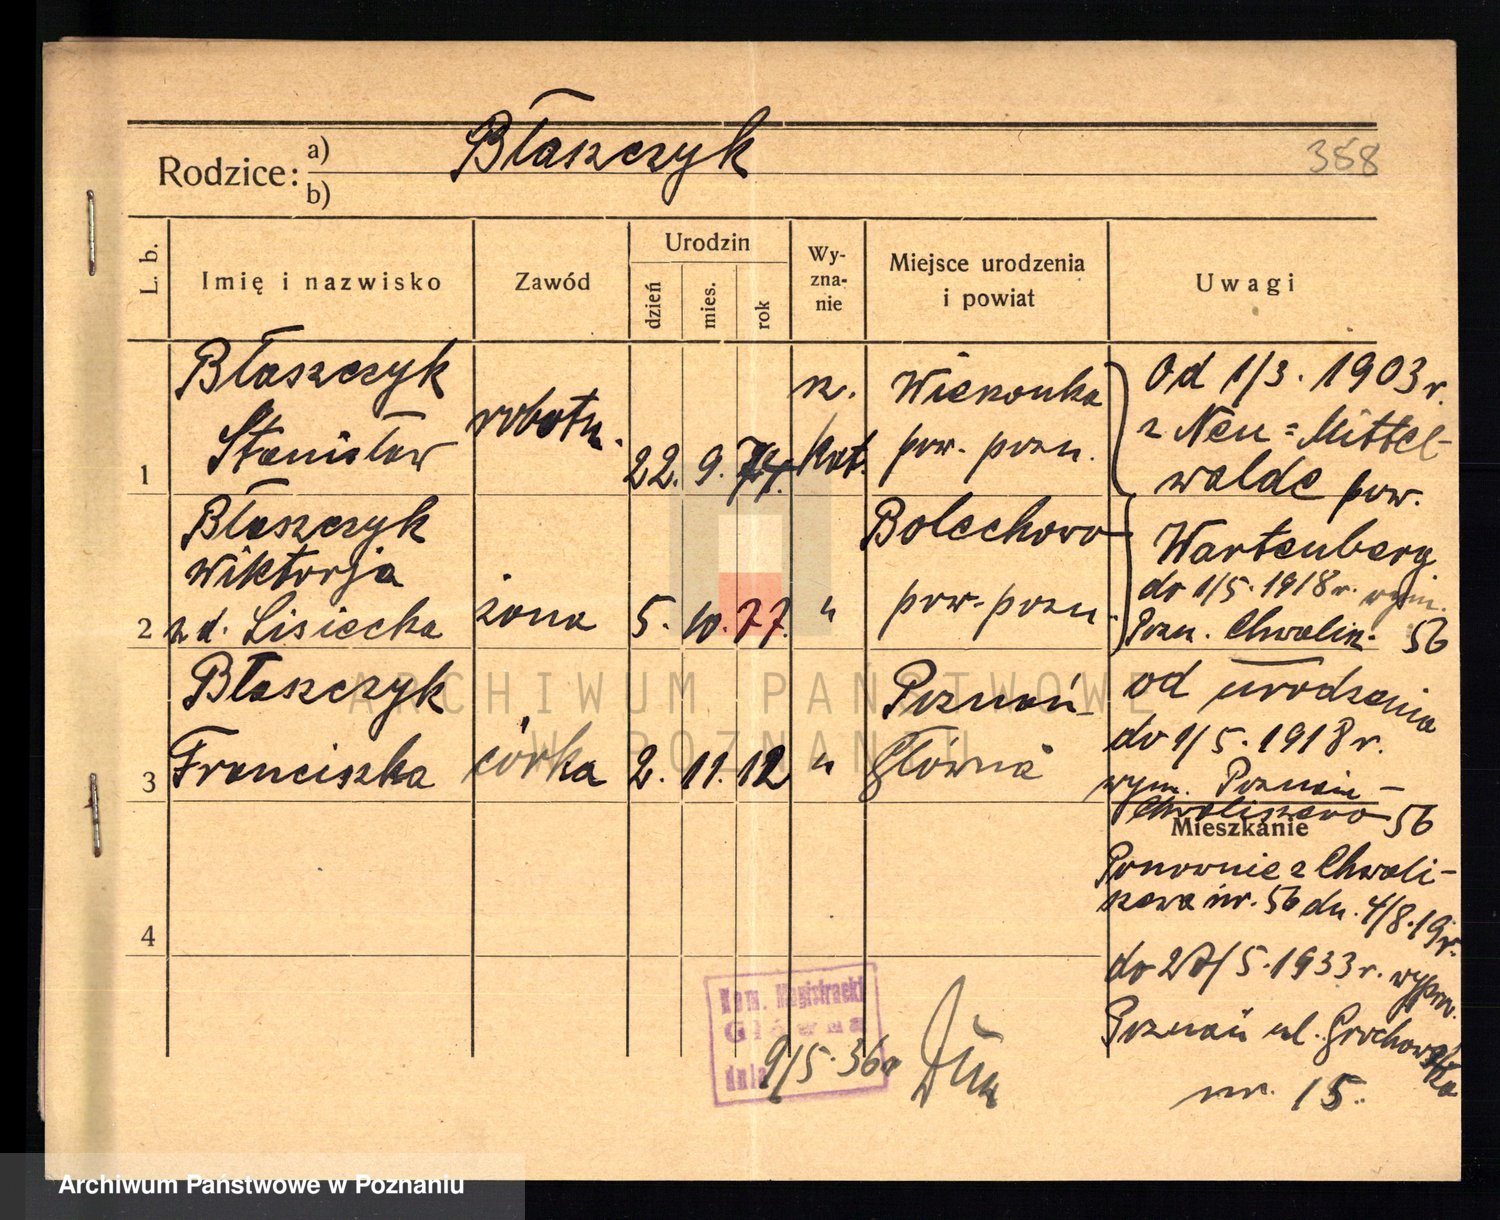 Błaszczyk
358
Rodzice: a)
b)
L. b.
Imię i nazwisko
Zawód
Urodzin
dzień
mies.
rok
Wy-
zna-
nie
Miejsce urodzenia
i powiat
Uwagi
1
Błaszczyk
Stanisław
robotn.
22. 9. 74.
rz.
kat.
Wierzonka
pow. pozn.
Od 1/3. 1903 r.
z Neu=Mittel-
walde pow.
Wartenberg.
do 1/5. 1918 r. wym.
Pozn. Chwalisz. 56
2
Błaszczyk
Wiktorja
z d. Lisiecka
żona
5. 10. 77.
"
Bolechowo
pow. pozn.
3
Błaszczyk
Franciszka
córka
2. 11. 12
"
Poznań-
Główna
od urodzenia
do 1/5. 1918 r.
wym. Poznań -
Chwaliszewo 56
Mieszkanie
Ponownie z Chwali-
szewa nr. 56 dn. 4/8. 19 r.
do 27/5. 1933 r. wypm.
Poznań ul. Grochowska
nr. 15.
4
Kom. Magistracki
Główna
dnia 9/5. 36 r
ARCHIWUM PAŃSTWOWE
W POZNANIU
Archiwum Państwowe w Poznaniu